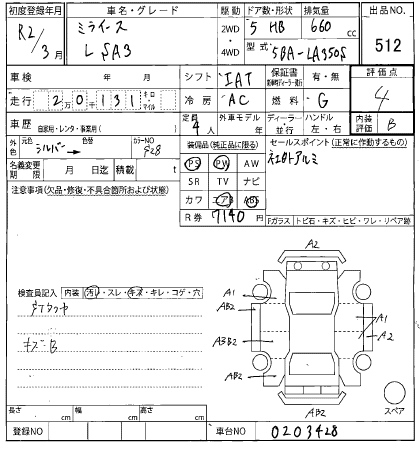 初度登録年月 車名・グレード 駆動 ドア数・形状 排気量 出品NO.
R2/3月 ミライース L SA3 2WD 4WD 5 HB 660 cc 512
型式 5BA-LA350S
車検 年 月 シフト IAT 保証書 有・無 評価点
走行 2万0千131 キロ・マイル 冷房 AC 燃料 G 4
車歴 自家用・レンタ・事業用( ) 定員 4人 外車モデル 年 ディーラー・並行 ハンドル 左・右 内装評価 B
外色 元色 シルバー 色替 カラーNO S28
装備品(純正品に限る) セールスポイント(正常に作動するもの)
名義変更期限 月 日迄 積載 t
PS PW AW 社外アルミ
SR TV ナビ
注意事項(欠品・修復・不具合箇所および状態)
カワ エアB ABS
R券 7140円
Fガラス トビ石・キズ・ヒビ・ワレ・リペア跡
検査員記入 内装 汚レ・スレ・キズ・キレ・コゲ・穴
キズB
A2
A1
AB2
A1
A3B2
A2
AB2
AB2
スペア
長さ cm 幅 cm 高さ cm
登録NO 車台NO 0203428